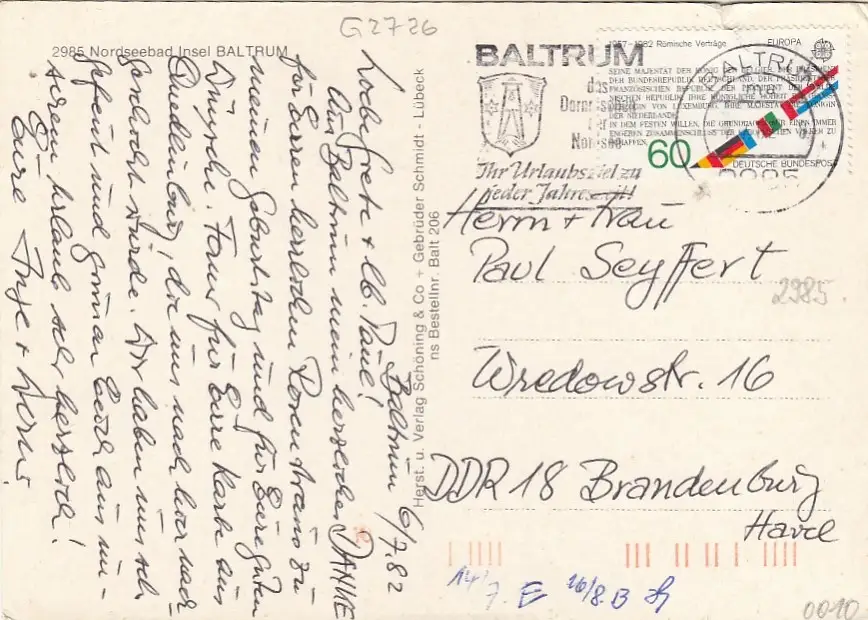 G2726
2985 Nordseebad Insel BALTRUM
Baltrum 6/7.82
Liebe Grete + lb. Paul!
Aus Baltrum mein herzliches DANKE
für Eure herrlichen Rosenstrauß zu
meinem Geburtstag und für Eure guten
Wünsche. Ferner für Eure Karte aus
Quedlinburg, die uns nach hier nach-
geschickt wurde. Wir haben uns sehr
gefreut und grüßen Euch aus un-
serem Urlaub sehr herzlich!
Eure Inge +
Herst. u. Verlag Schöning & Co + Gebrüder Schmidt - Lübeck
ns Bestellnr. Balt 206
BALTRUM
das
Dornröschen
der
Nordsee
Ihr Urlaubsziel zu
jeder Jahreszeit!
1957-1982 Römische Verträge
EUROPA
SEINE MAJESTÄT DER KÖNIG DER BELGIER, DER PRÄSIDENT
DER BUNDESREPUBLIK DEUTSCHLAND, DER PRÄSIDENT DER
FRANZÖSISCHEN REPUBLIK, DER PRÄSIDENT DER ITALIE-
NISCHEN REPUBLIK, IHRE KÖNIGLICHE HOHEIT DIE GROSS-
HERZOGIN VON LUXEMBURG, IHRE MAJESTÄT DIE KÖNIGIN
DER NIEDERLANDE,
IN DEM FESTEN WILLEN, DIE GRUNDLAGEN FÜR EINEN IMMER
ENGEREN ZUSAMMENSCHLUSS DER EUROPÄISCHEN VÖLKER ZU
SCHAFFEN,
60
DEUTSCHE BUNDESPOST
BALTRUM
2985
Herrn + Frau
Paul Seyffert
2985.
Wredowstr. 16
DDR 18 Brandenburg
Havel
7. E 26/8. B
0010